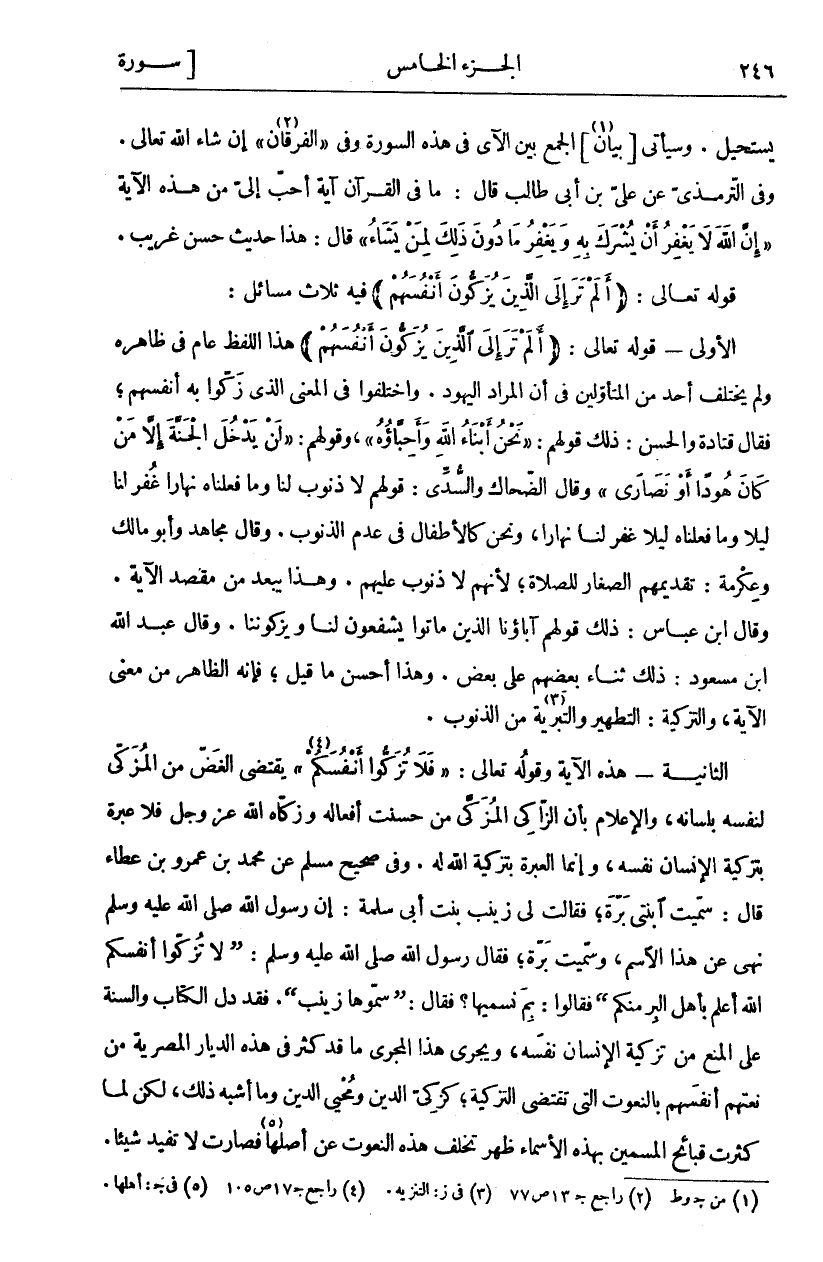 ٢٤٦ الجـزء الخامس [ ســورة
يستحيل . وسيأتى [ بيان ](١) الجمع بين الآى فى هذه السورة وفى «الفرقان»(٢) إن شاء الله تعالى .
وفى التّرمـذىّ عن علىّ بن أبى طالب قال : ما فى القـرآن آية أحبّ إلىّ من هـذه الآية
« إِنَّ اللَّهَ لَا يَغْفِرُ أَنْ يُشْرَكَ بِهِ وَيَغْفِرُ مَا دُونَ ذَلِكَ لِمَنْ يَشَاءُ» قال : هذا حديث حسن غريب .
قوله تعـالى : ﴿ أَلَمْ تَرَ إِلَى الَّذِينَ يُزَكُّونَ أَنْفُسَهُمْ ﴾ فيه ثلاث مسائل :
الأولى – قوله تعالى : ﴿ أَلَمْ تَرَ إِلَى ٱلَّذِينَ يُزَكُّونَ أَنْفُسَهُمْ ﴾ هذا اللفظ عام فى ظاهره
ولم يختلف أحد من المتأوّلين فى أن المراد اليهود . واختلفوا فى المعنى الذى زَكّوا به أنفسهم ؛
فقال قتادة والحسن : ذلك قولهم : «نَحْنُ أَبْنَاءُ اللَّهِ وَأَحِبَّاؤُهُ» ، وقولهم : «لَنْ يَدْخُلَ الْجَنَّةَ إِلَّا مَنْ
كَانَ هُودًا أَوْ نَصَارَى » وقال الضّحاك والسُّدِّى : قولهم لا ذنوب لنا وما فعلناه نهارا غُفر لنا
ليلا وما فعلناه ليلا غفر لنـا نهارا، ونحن كالأطفال فى عدم الذنوب . وقال مجاهد وأبو مالك
وعِكْرمة : تقديمهم الصغار للصلاة ؛ لأنهم لا ذنوب عليهم . وهـذا يبعد من مقصد الآية .
وقال ابن عبـاس : ذلك قولهم آباؤنا الذين ماتوا يشفعون لنـا ويزكوننا . وقال عبـد الله
ابن مسعود : ذلك ثنـاء بعضهم على بعض . وهذا أحسن ما قيل ؛ فإنه الظاهر من معنى
الآية ، والتزكية : التطهير والتبرية(٣) من الذنوب .
الثانيـة – هذه الآية وقولُه تعالى : « فَلَا تُزَكُّوا أَنْفُسَكُمْ(٤) » يقتضى الغَضّ من المُزَكِّى
لنفسه بلسانه ، والإعلام بأن الزّاكى المُزَكَّى من حسنت أفعاله وزكّاه الله عز وجل فلا عبرة
بتزكية الإنسان نفسه ، وإنما العبرة بتزكية الله له . وفى صحيح مسلم عن محمد بن عمرو بن عطاء
قال : سمّيت ٱبنتى بَرّة ؛ فقالت لى زينب بنت أبى سلمة : إن رسول الله صلى الله عليه وسلم
نهى عن هذا الٱسم ، وسمّيت بَرّة ؛ فقال رسول الله صلى الله عليه وسلم : ” لا تُزَكّوا أنفسكم
الله أعلم بأهل البِر منكم “ فقالوا : بِمَ نسميها ؟ فقال : ” سمّوها زينب “ . فقد دل الكتاب والسنة
على المنع من تزكية الإنسان نفسَه ، ويجرى هذا المجرى ما قد كثر فى هذه الديار المصرية من
نعتهم أنفسَهم بالنعوت التى تقتضى التزكية ؛ كزكىّ الدين ومُحْيى الدين وما أشبه ذلك ، لكن لمـا
كثرت قبائح المسمين بهذه الأسماء ظهر تخلف هذه النعوت عن أصلها(٥) فصارت لا تفيد شيئا .
(١) من جـ وط (٢) راجع جـ ١٣ ص ٧٧ (٣) فى ز : التنزيه . (٤) راجع جـ ١٧ ص ١٠٥ (٥) فى جـ : أهلها .